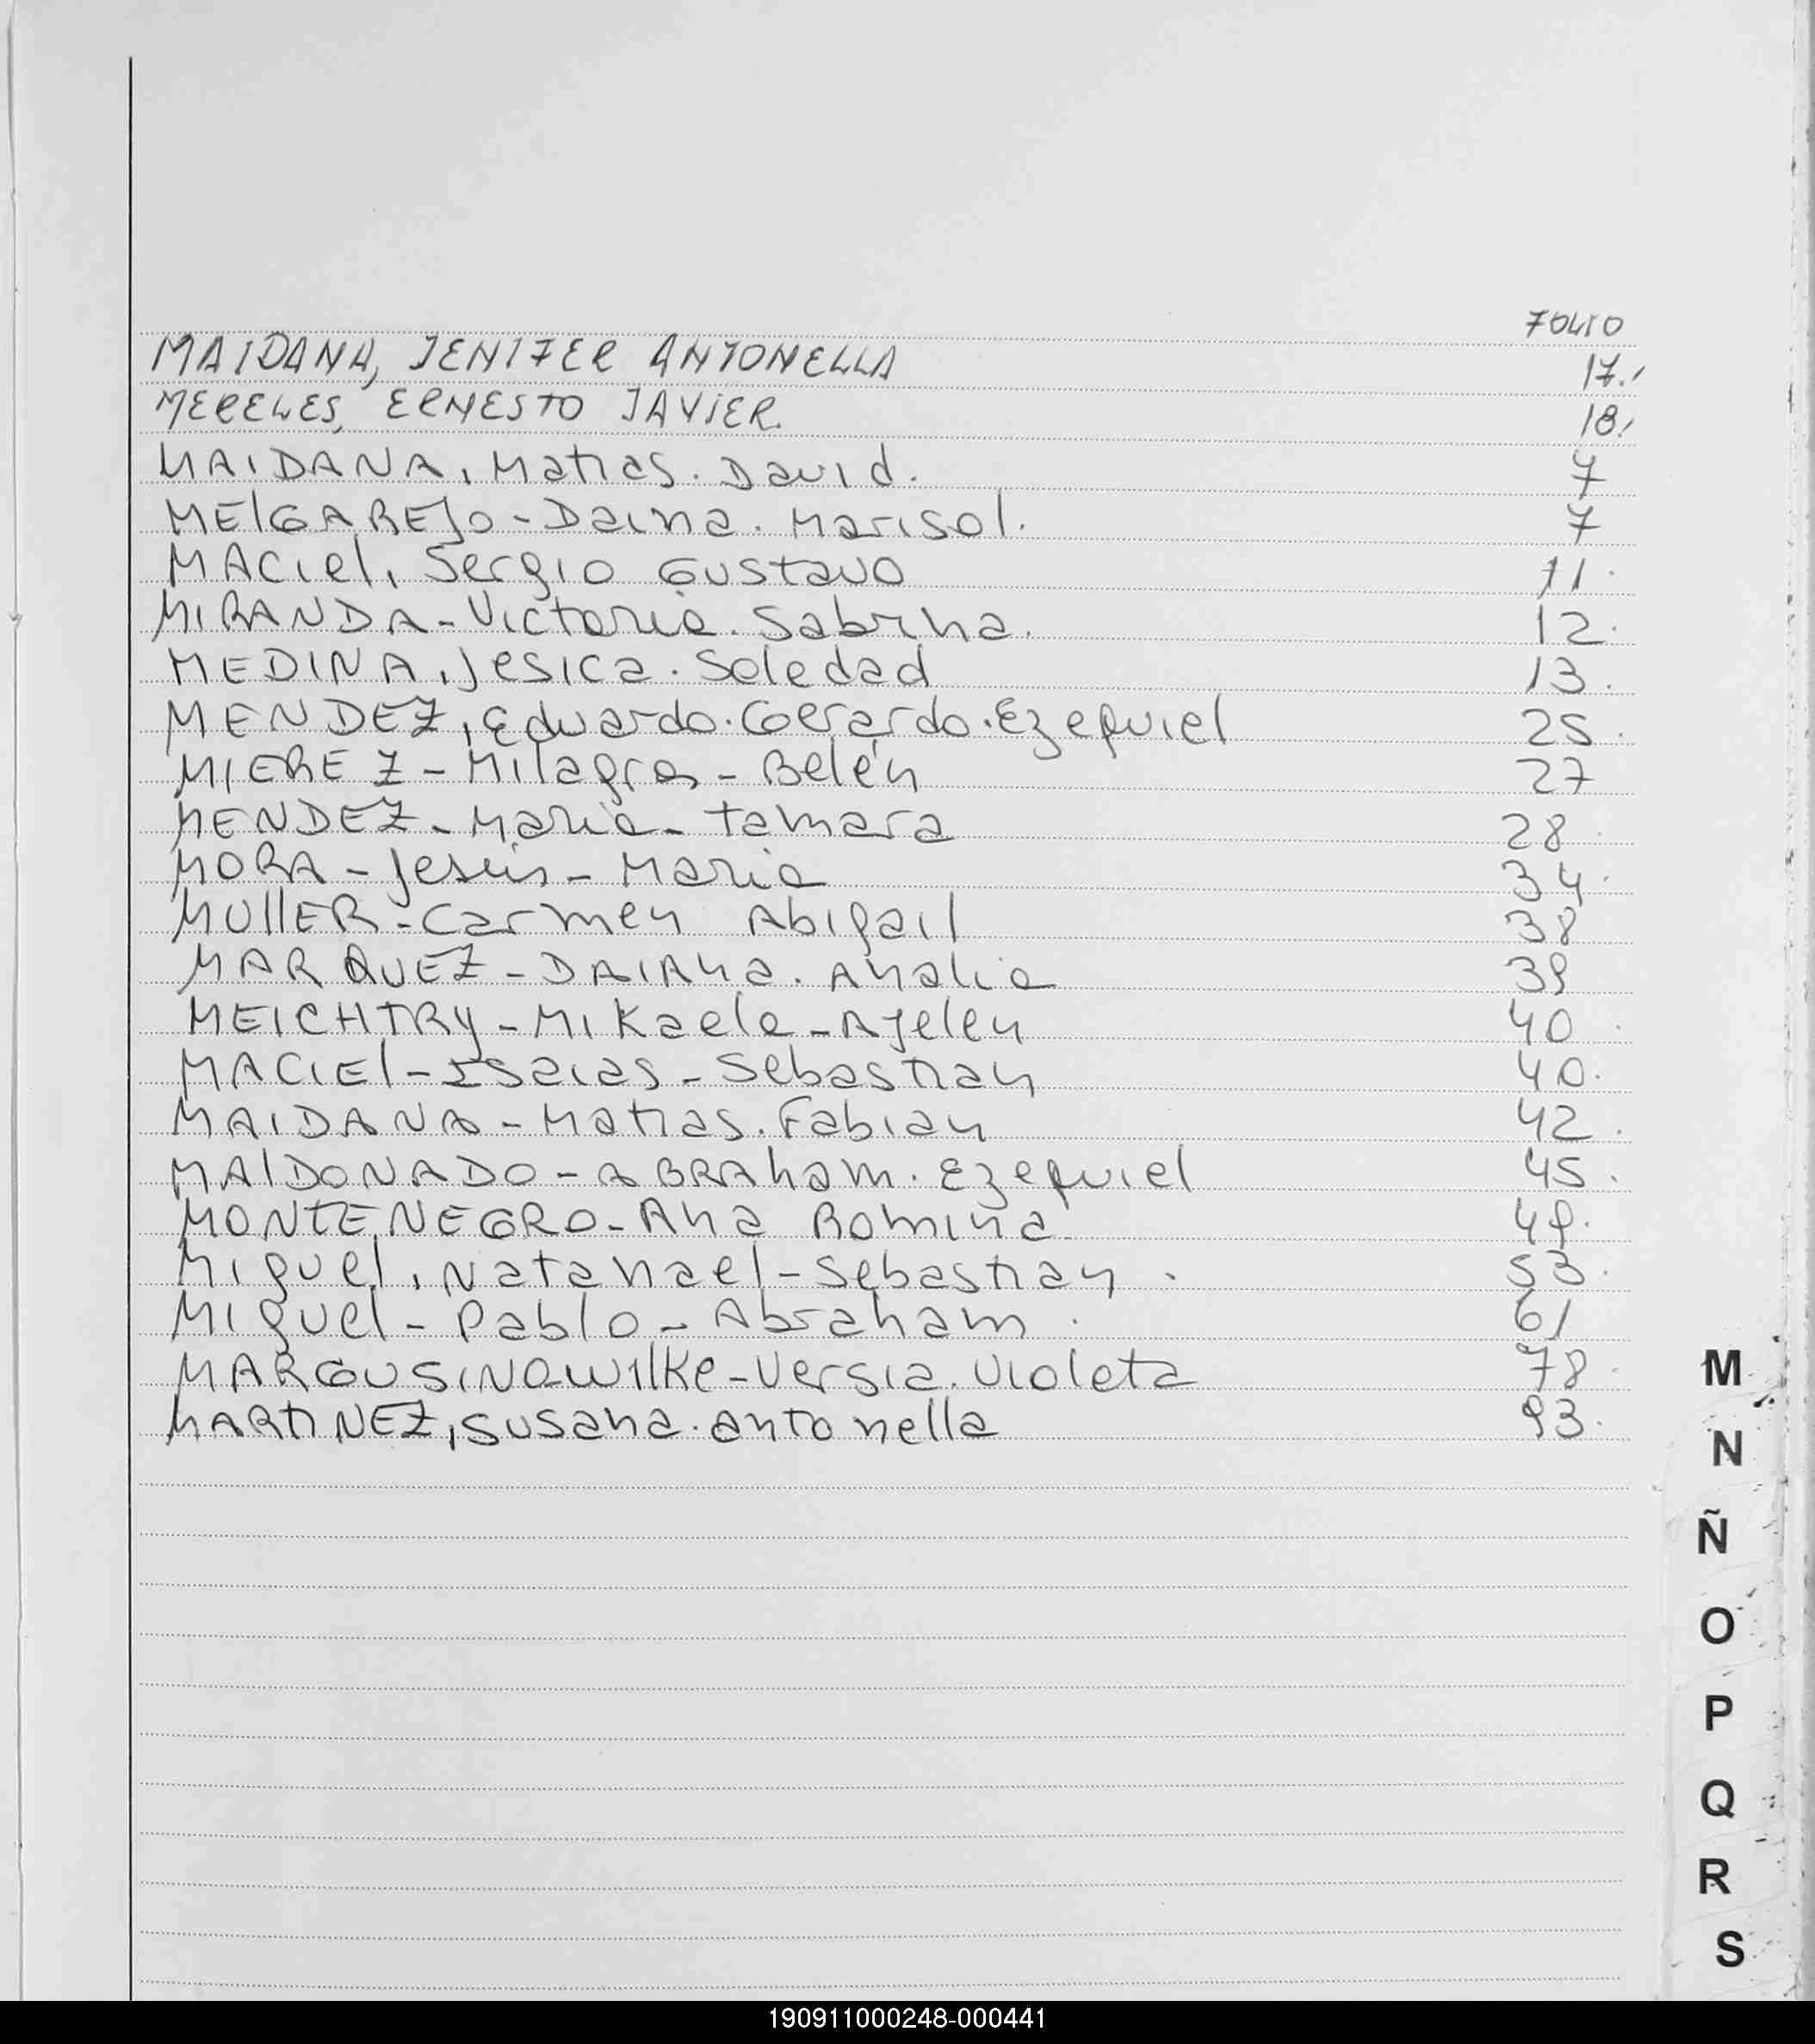 FOLIO
MAIDANA, JENIFER ANTONELLA 17.
MERELES, ERNESTO JAVIER. 18.
MAIDANA, Matias. David. 7
MElGAREJO - Daina. Marisol. 7
MACiel, Sergio Gustavo 11.
MIRANDA - Victoria. Sabrina. 12.
MEDINA, Jesica. Soledad 13.
MENDEZ, Eduardo. Gerardo. Ezequiel 25.
MIEREZ - Milagros - Belén 27
MENDEZ - Maria - tamara 28.
MORA - Jesús - Maria 34.
MUllER - Carmen Abigail 38
MARQUEZ - DAIAna. Analia 39
MEICHTRY - Mikaela - Ayelen 40.
MACIEl - Isaias - Sebastian 40.
MAIDANA - Matias. Fabian 42.
MAlDONADO - ABRAham. Ezequiel 45.
MONTENEGRO - Ana Romina 49.
Miguel, Natanael - Sebastian. 53.
Miguel - Pablo - Abraham. 61
MARGUSINOWilke - Versia. Violeta 78.
MARTINEZ, Susana. antonella 93.
M
N
Ñ
O
P
Q
R
S
190911000248-000441